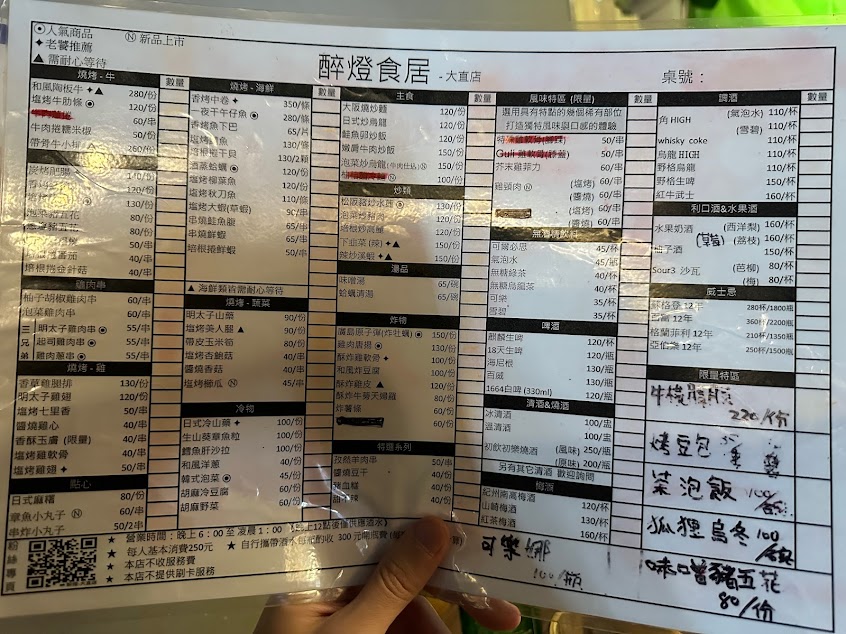 ⊙人氣商品
✦老饕推薦
▲需耐心等待
Ⓝ 新品上市
醉燈食居 - 大直店
桌號：
燒烤 - 牛 數量
和風陶板牛✦▲ 280/份
塩烤牛肋條 ⊙ 120/份
牛肉捲糯米椒 50/串
帶骨牛小排▲ 260/份
培根捲番茄
培根捲金針菇 40/份
雞肉串
柚子胡椒雞肉串 60/串
泡菜雞肉串 60/串
三 明太子雞肉串 ⊙ 55/串
兄 起司雞肉串 ⊙ 55/串
弟 雞肉蔥串 ⊙ 55/串
燒烤 - 雞
香草雞腿排 130/份
明太子雞翅 120/份
塩烤七里香 50/串
醬燒雞心 40/份
香酥玉膚 (限量) 40/份
塩烤雞軟骨 40/份
塩烤雞翅 ✦ 50/串
點心
日式麻糬 80/份
章魚小丸子 Ⓝ 60/份
串炸小丸子 50/2串
燒烤 - 海鮮 數量
香烤中卷 ✦ 350/條
一夜干午仔魚 ⊙ 280/條
香烤魚下巴 65/片
130/條
培根捲干貝 130/2顆
酒蒸蛤蠣 ⊙ 120/份
塩烤柳葉魚 120/份
塩烤秋刀魚 110/條
塩烤大蝦(草蝦) 90/串
串燒鮭魚腹 65/串
串燒鮮蝦 65/串
培根捲鮮蝦 50/串
▲ 海鮮類皆需耐心等待
燒燒 - 蔬菜
明太子山藥 90/份
塩烤美人腿 ▲ 90/份
帶皮玉米筍 80/份
塩烤杏鮑菇 40/份
醬燒香菇 40/串
塩烤櫛瓜 Ⓝ 45/串
冷物
日式冷山藥 ✦ 100/份
生山葵章魚粒 50/份
鱈魚肝沙拉 100/份
和風洋蔥 40/份
韓式泡菜 ⊙ 45/份
胡麻冷豆腐 60/份
胡麻野菜 60/份
主食 數量
大阪燒炒麵 120/份
日式炒烏龍 120/份
鮭魚卵炒飯 120/份
嫩肩牛肉炒飯 120/份
泡菜炒烏龍(牛肉仕込)Ⓝ 120/份
100/份
炒類
松阪豬炒水蓮 ⊙ 130/份
泡菜炒豬肉 120/份
培根炒高麗 120/份
下韭菜 (辣) ✦▲ 120/份
辣炒溪蝦 ✦▲ 120/份
湯品
味噌湯 65/碗
蛤蠣清湯 65/碗
炸物
廣島原子彈(炸牡蠣) ⊙ 150/份
雞肉唐揚 ⊙ 130/份
酥炸雞軟骨 ✦ 100/份
和風炸豆腐 60/份
酥炸雞皮 ▲ 120/份
酥炸牛蒡天婦羅 80/份
炸薯條 60/份
60/份
特選系列
孜然羊肉串 50/串
醬燒豆干 40/份
豬血糕 40/份
甜不辣 40/份
風味特區 (限量) 數量
選用具有特點的幾個稀有部位
打造獨特風味與口感的體驗
50/串
50/串
芥末雞菲力 60/串
雞頸肉 Ⓝ (塩烤) 60/串
(醬燒) 60/串
(塩烤) 60/串
(醬燒) 60/串
無酒精飲料
可爾必思 45/杯
氣泡水 45/瓶
無糖綠茶 35/杯
無糖烏龍茶 35/杯
可樂 35/杯
雪碧 35/杯
啤酒
麒麟生啤 100/杯
18天生啤 120/瓶
海尼根 130/瓶
百威 130/瓶
1664白啤 (330ml) 120/瓶
清酒&燒酒
冰清酒 100/盅
溫清酒 100/盅
初飲初樂燒酒 (風味) 250/瓶
(原味) 200/瓶
另有其它清酒 歡迎詢問
梅酒
紀州南高梅酒 120/杯
山崎梅酒 130/杯
紅茶梅酒 160/杯
調酒 數量
角HIGH (氣泡水) 110/杯
(雪碧) 110/杯
whisky coke 110/杯
烏龍HIGH 110/杯
野格烏龍 150/杯
野格生啤 150/杯
紅牛武士 160/杯
利口酒&水果酒
水果奶酒 (西洋梨) 160/杯
(草莓) (荔枝) 160/杯
柚子酒 150/杯
Sour3 沙瓦 (芭柳) 80/杯
(梅) 80/杯
威士忌
蘇格登 12年 280杯/1800瓶
12年 360杯/2200瓶
格蘭菲利 12年 210杯/1350瓶
亞伯 12年 250杯/1500瓶
限量特區
220/份
烤豆包
菜泡飯 100
狐狸烏冬 100
味噌豬五花
80/份
可樂娜
100/瓶
粉絲專頁
營業時間：晚上 6：00 至 凌晨 1：00
★ 每人基本消費250元
★ 本店不收服務費
★ 本店不提供刷卡服務